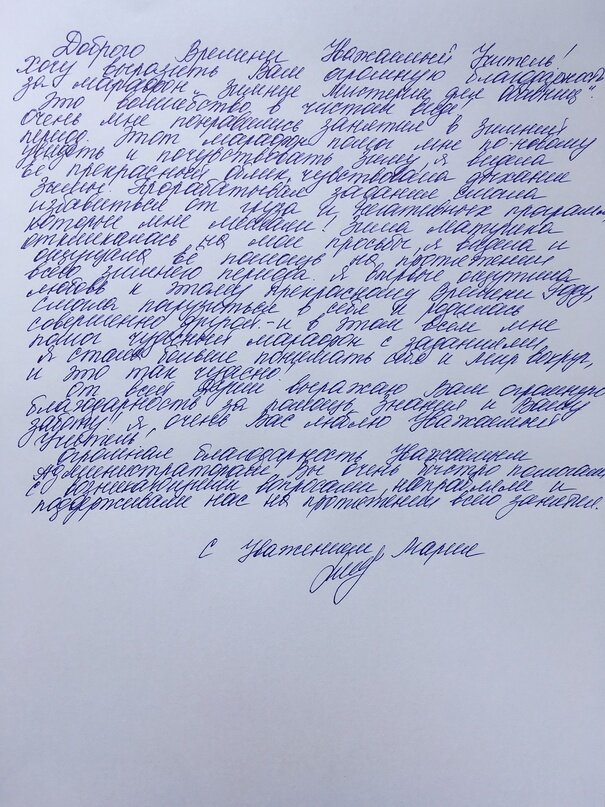 Доброго Времени Уважаемый Учитель!
Хочу выразить Вам огромную благодарность
за марафон "Зимние Мистерии для
Это волшебство в чистом виде.
Очень мне понравились занятие в зимний
период. Этот марафон помог мне по-новому
увидеть и почувствовать зиму, я видела
её прекрасный облик, чувствовала дыхание
Зимы! Прорабатывая задание смогла
избавиться от груза и негативных программ,
которые мне мешали! Зима матушка
откликалась на мои просьбы, я видела и
ощущала её помощь на протяжении
всего зимнего периода. Я впервые ощутила
любовь к этому прекрасному Времени Году,
смогла погрузиться в себя и родилась
совершенно другой - и в этом всем мне
помог чудесный марафон с заданиями,
я стала больше понимать себя и мир вокруг,
и это так чудесно.
От всей души выражаю Вам огромную
благодарность за помощь, знания и Вашу
заботу! Я, очень Вас люблю Уважаемый
Учитель.
Огромная благодарность Уважаемым
Администраторам! Вы очень быстро помогали
с возникающими вопросами направляли и
поддерживали нас на протяжении всего занятия.
С Уважением Мария